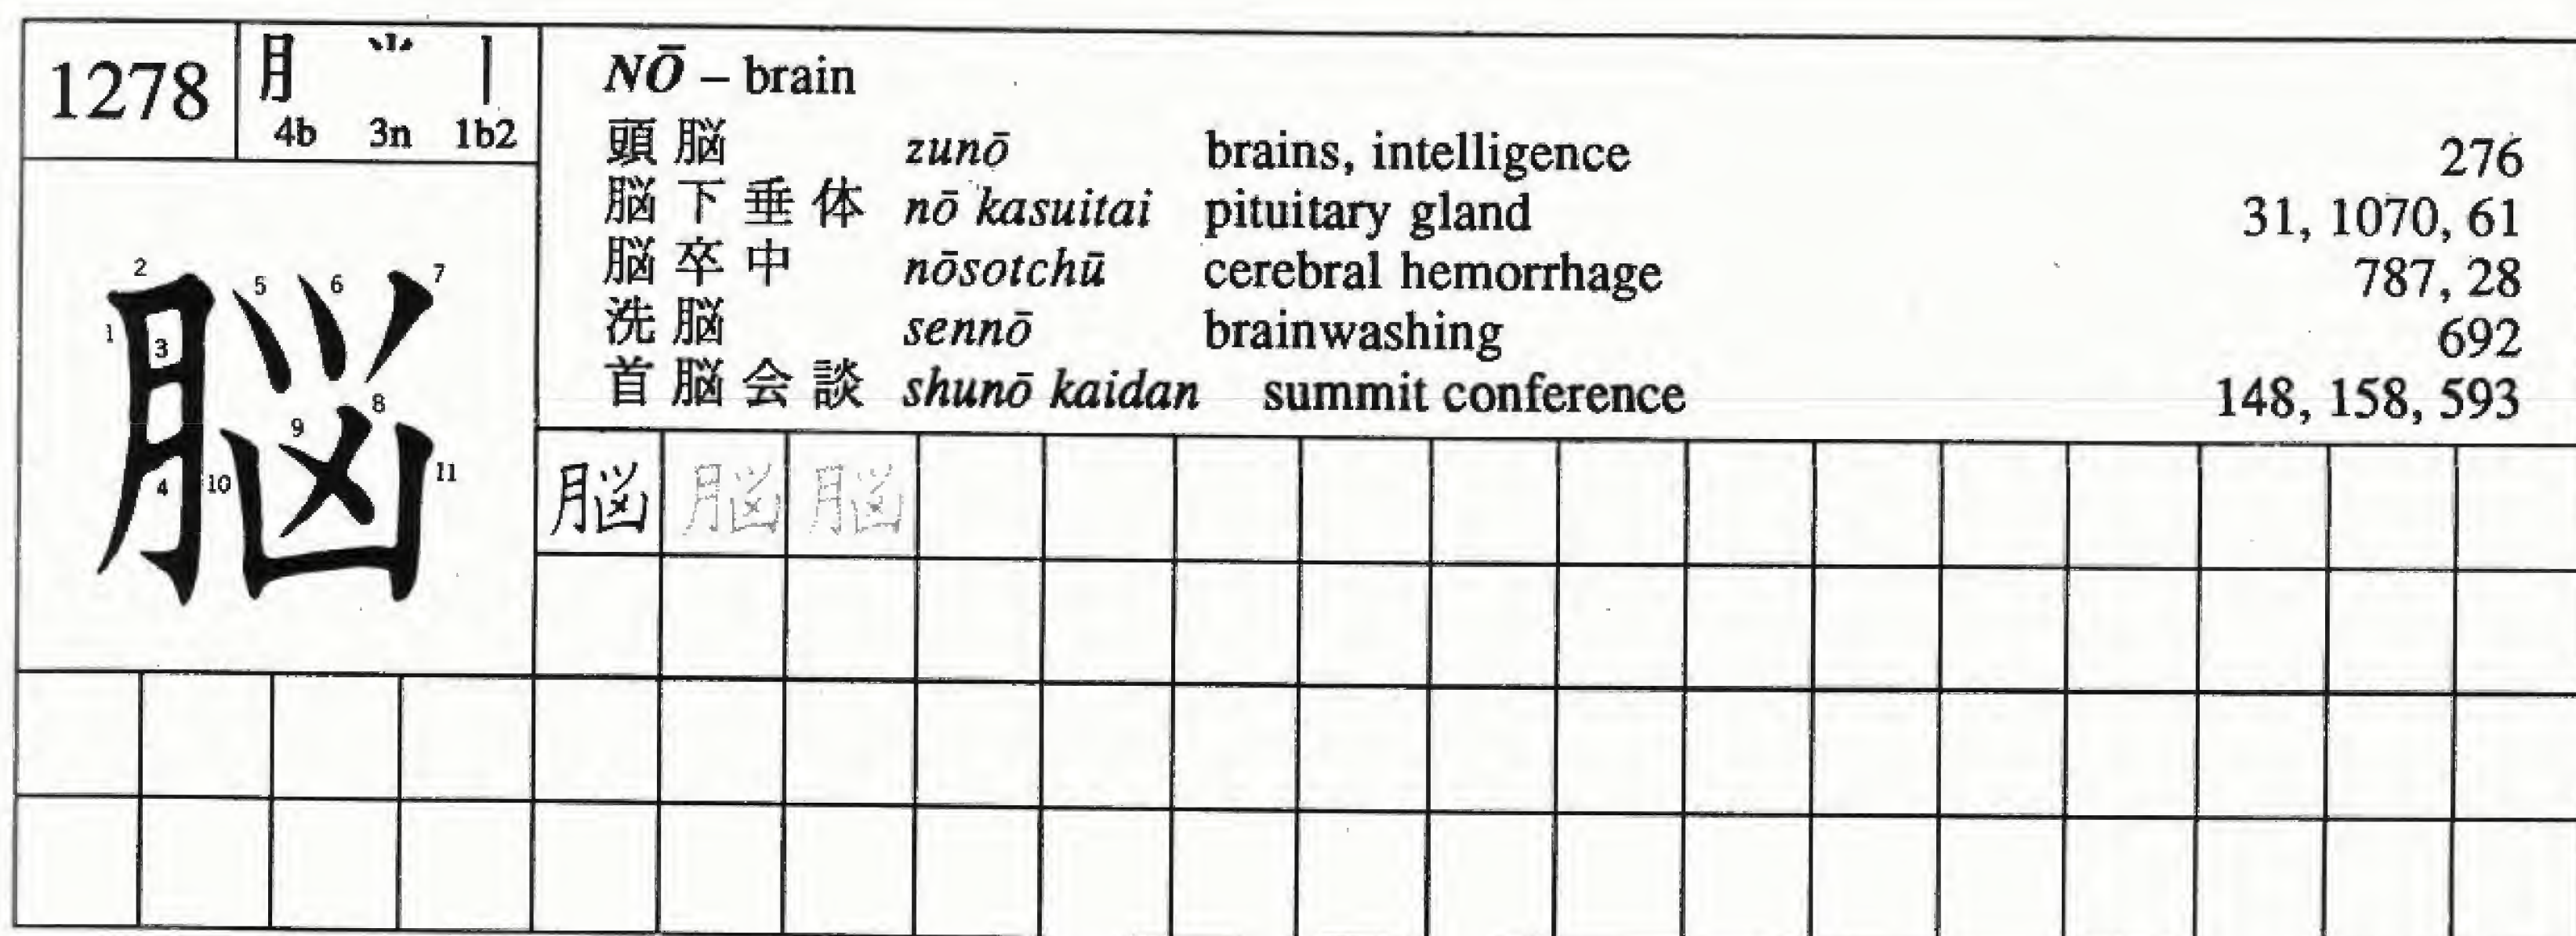 1278
月 ⺌ 丨
4b 3n 1b2
NŌ – brain
頭脳 zunō brains, intelligence 276
脳下垂体 nō kasuitai pituitary gland 31, 1070, 61
脳卒中 nōsotchū cerebral hemorrhage 787, 28
洗脳 sennō brainwashing 692
首脳会談 shunō kaidan summit conference 148, 158, 593
脳
1 2 3 4 5 6 7 8 9 10 11
脳 脳 脳